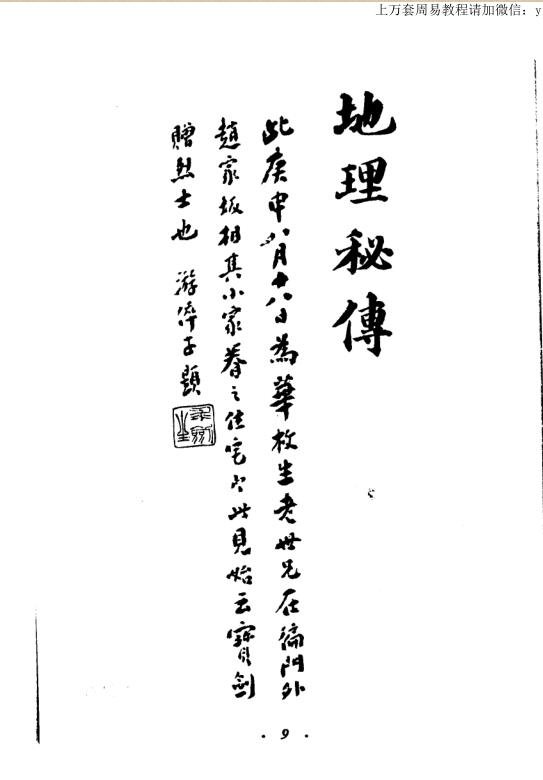 上万套周易教程请加微信：y
地理秘傳
此庚申八月十八日為華枚生老世兄在偏門外
趙家坂相其小家眷之住宅以此見始云寶劍
贈烈士也 游定子題
· 9 ·